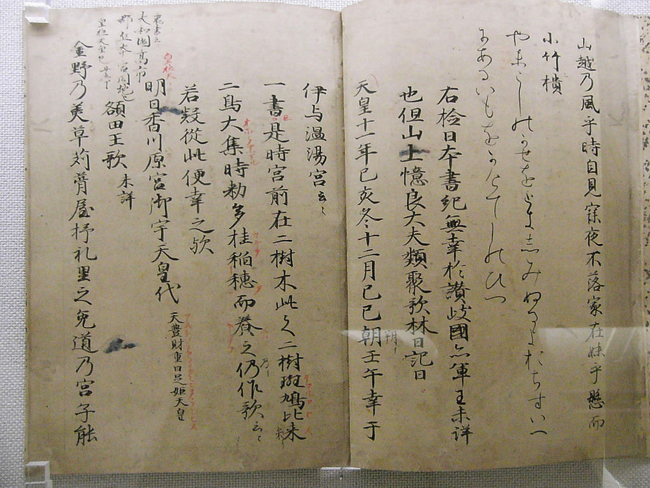 山越乃風乎時自見寐夜不落家在妹乎懸而
小竹樻
やまこしのかせをときしみぬるよおちすいへ
にあるいもをかけてしのひつ
右撿日本書紀無幸於讃岐國亦軍王未詳
也但山上憶良大夫類聚歌林日記曰
天皇十一年己亥冬十二月己巳朔壬午幸于
伊与温湯宮云々
一書是時宮前在二樹木此之二樹斑鳩比米
二鳥大集時勅多挂稲穂而養之仍作歌云々
若疑從此便幸之歟
明日香川原宮御宇天皇代 天豊財重日足姫天皇
額田王歌 未詳
金野乃美草苅葺屋杼礼里之兎道乃宮子能